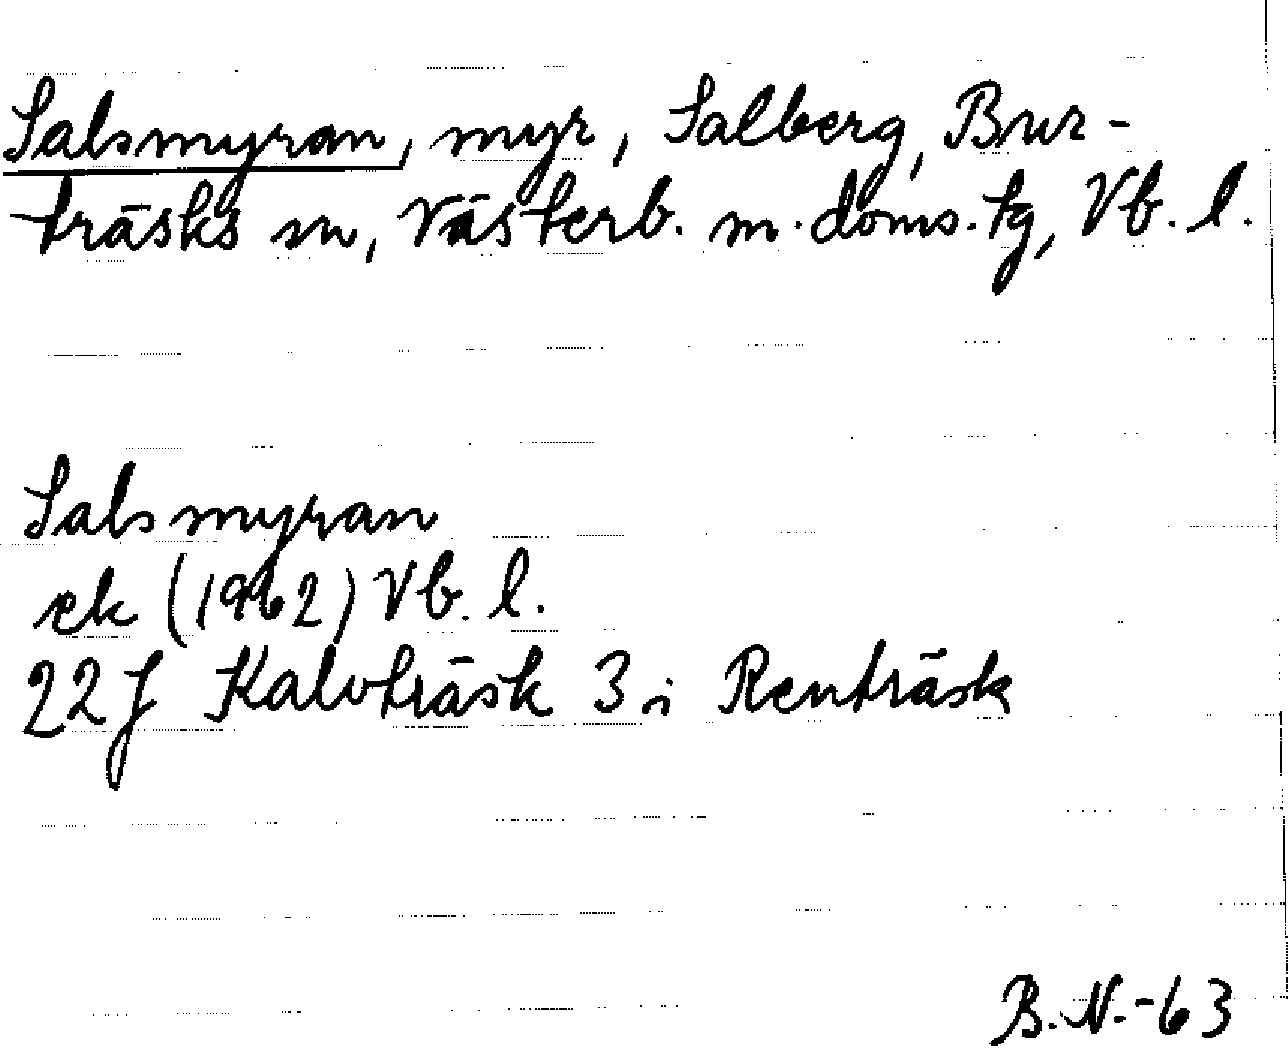 Salsmyran, myr, Salberg, Bur-
träsks sn, Västerb. m. doms. tg, Vb. l.
Salsmyran
ek (1962) Vb. l.
22J Kalvträsk 3 i Renträsk
B.N.-63